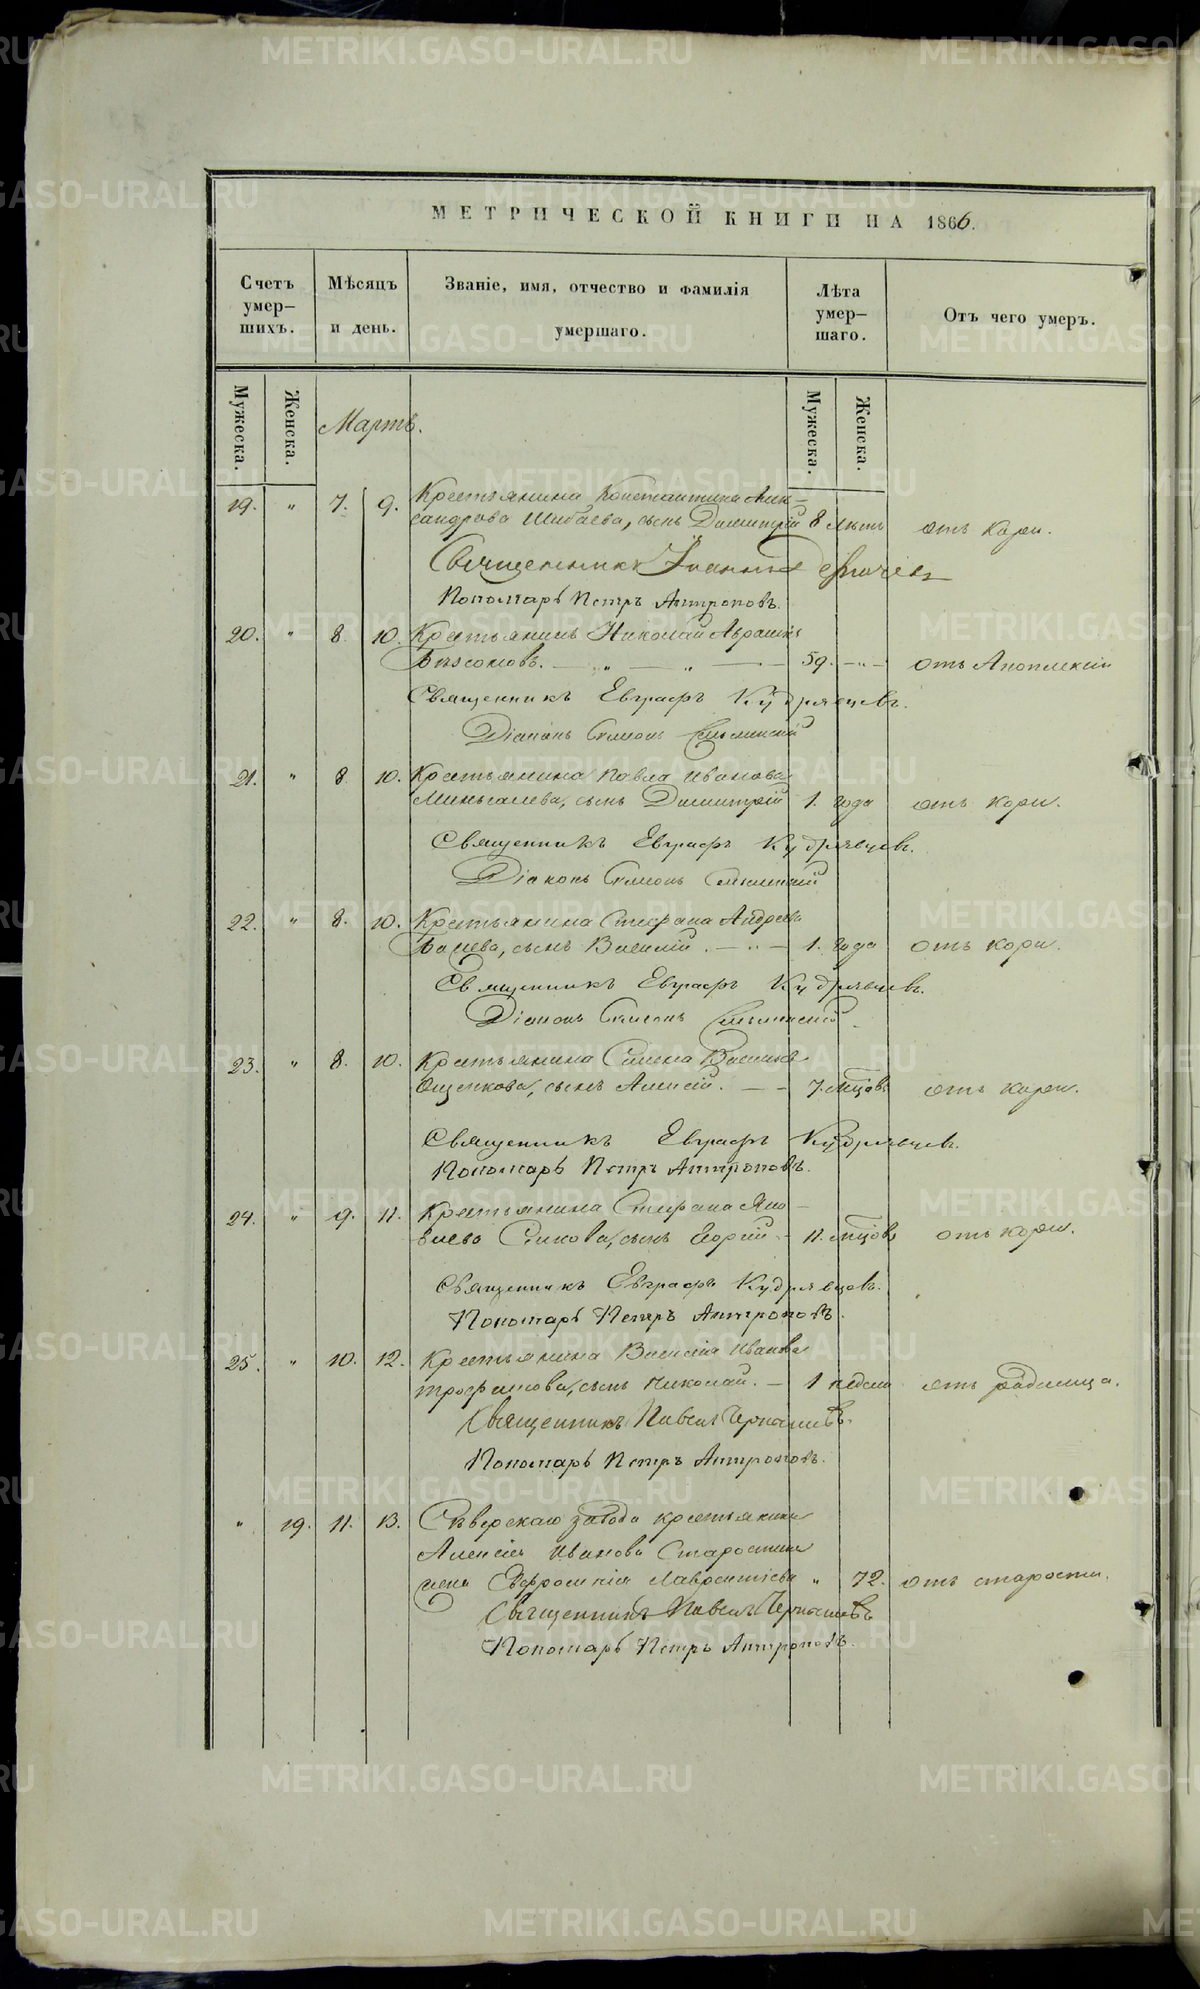 МЕТРИЧЕСКОЙ КНИГИ НА 1866.
Счетъ умер-шихъ.
Мѣсяцъ и день.
Званіе, имя, отчество и фамилія умершаго.
Лѣта умер-шаго.
Отъ чего умеръ.
Мужеска.
Женска.
Мартъ.
Мужеска.
Женска.
19. " 7. 9. Крестьянина Константина Алек-
сандрова Шибаева, сынъ Димитрій 8 лѣтъ отъ кори.
Священникъ Іоаннъ
Пономарь Петръ Антроповъ.
20. " 8. 10. Крестьянинъ Николай
59. - " - отъ Апоплексіи
Священникъ Евграфъ Кудрявцевъ.
Діаконъ Симеонъ
21. " 8 10. Крестьянина Павла Иванова
сынъ Димитрій 1. года отъ кори.
Священникъ Евграфъ Кудрявцевъ.
Діаконъ Симеонъ
22. " 8. 10. Крестьянина Стефана Андреева
сынъ Василій. - " - 1. года отъ кори.
Священникъ Евграфъ Кудрявцевъ.
Діаконъ Симеонъ
23. " 8. 10. Крестьянина
Ощепкова, сынъ Алексій. - - 7. мцовъ отъ кори.
Священникъ Евграфъ Кудрявцевъ.
Пономарь Петръ Антроповъ.
24. " 9. 11. Крестьянина Стефана Яко-
влева сынъ Георгій. - 11. мцовъ отъ кори.
Священникъ Евграфъ Кудрявцовъ.
Пономарь Петръ Антроповъ.
25. " 10. 12. Крестьянина Василія Иванова
Трофимова, сынъ Николай. - 1 недели отъ родимца.
Священникъ Павелъ Чернышевъ.
Пономарь Петръ Антроповъ.
" 19. 11. 13. Сѣверскаго завода крестьянина
Алексія Иванова Старостина
жена Евфросинія Лаврентіева " 72. отъ старости.
Священникъ Павелъ Чернышевъ
Пономарь Петръ Антроповъ.
METRIKI.GASO-URAL.RU